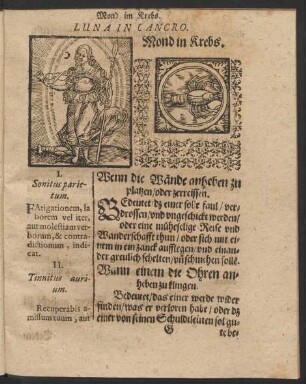 Mond im Krebs.
LUNA IN CANCRO.
Mond in Krebs.
I.
Sonitus parie-
tum.
FAtigationem, la
borem vel iter,
aut molestiam ver-
borum, & contra-
dictionum, indi-
cat.
II.
Tinnitus auri-
um.
Recuperabis a-
missum tuum, aut
Wenn die Wände anheben zu
platzen/oder zerreissen.
BEdeutet dz einer solle faul/ ver-
drossen/vnd vngeschickt werden/
oder eine mühseelige Reise vnd
Wanderschafft thun/ oder sich mit ei-
nem in ein zanck aufflegen/vnd einan-
der greulich schelten/
Wann einem die Ohren an-
heben zu klingen
Bedeutet/das einer werde wider
finden/was er verloren habe/ oder dz
einer von seinen Schuldleuten sol gu-
G
te be-